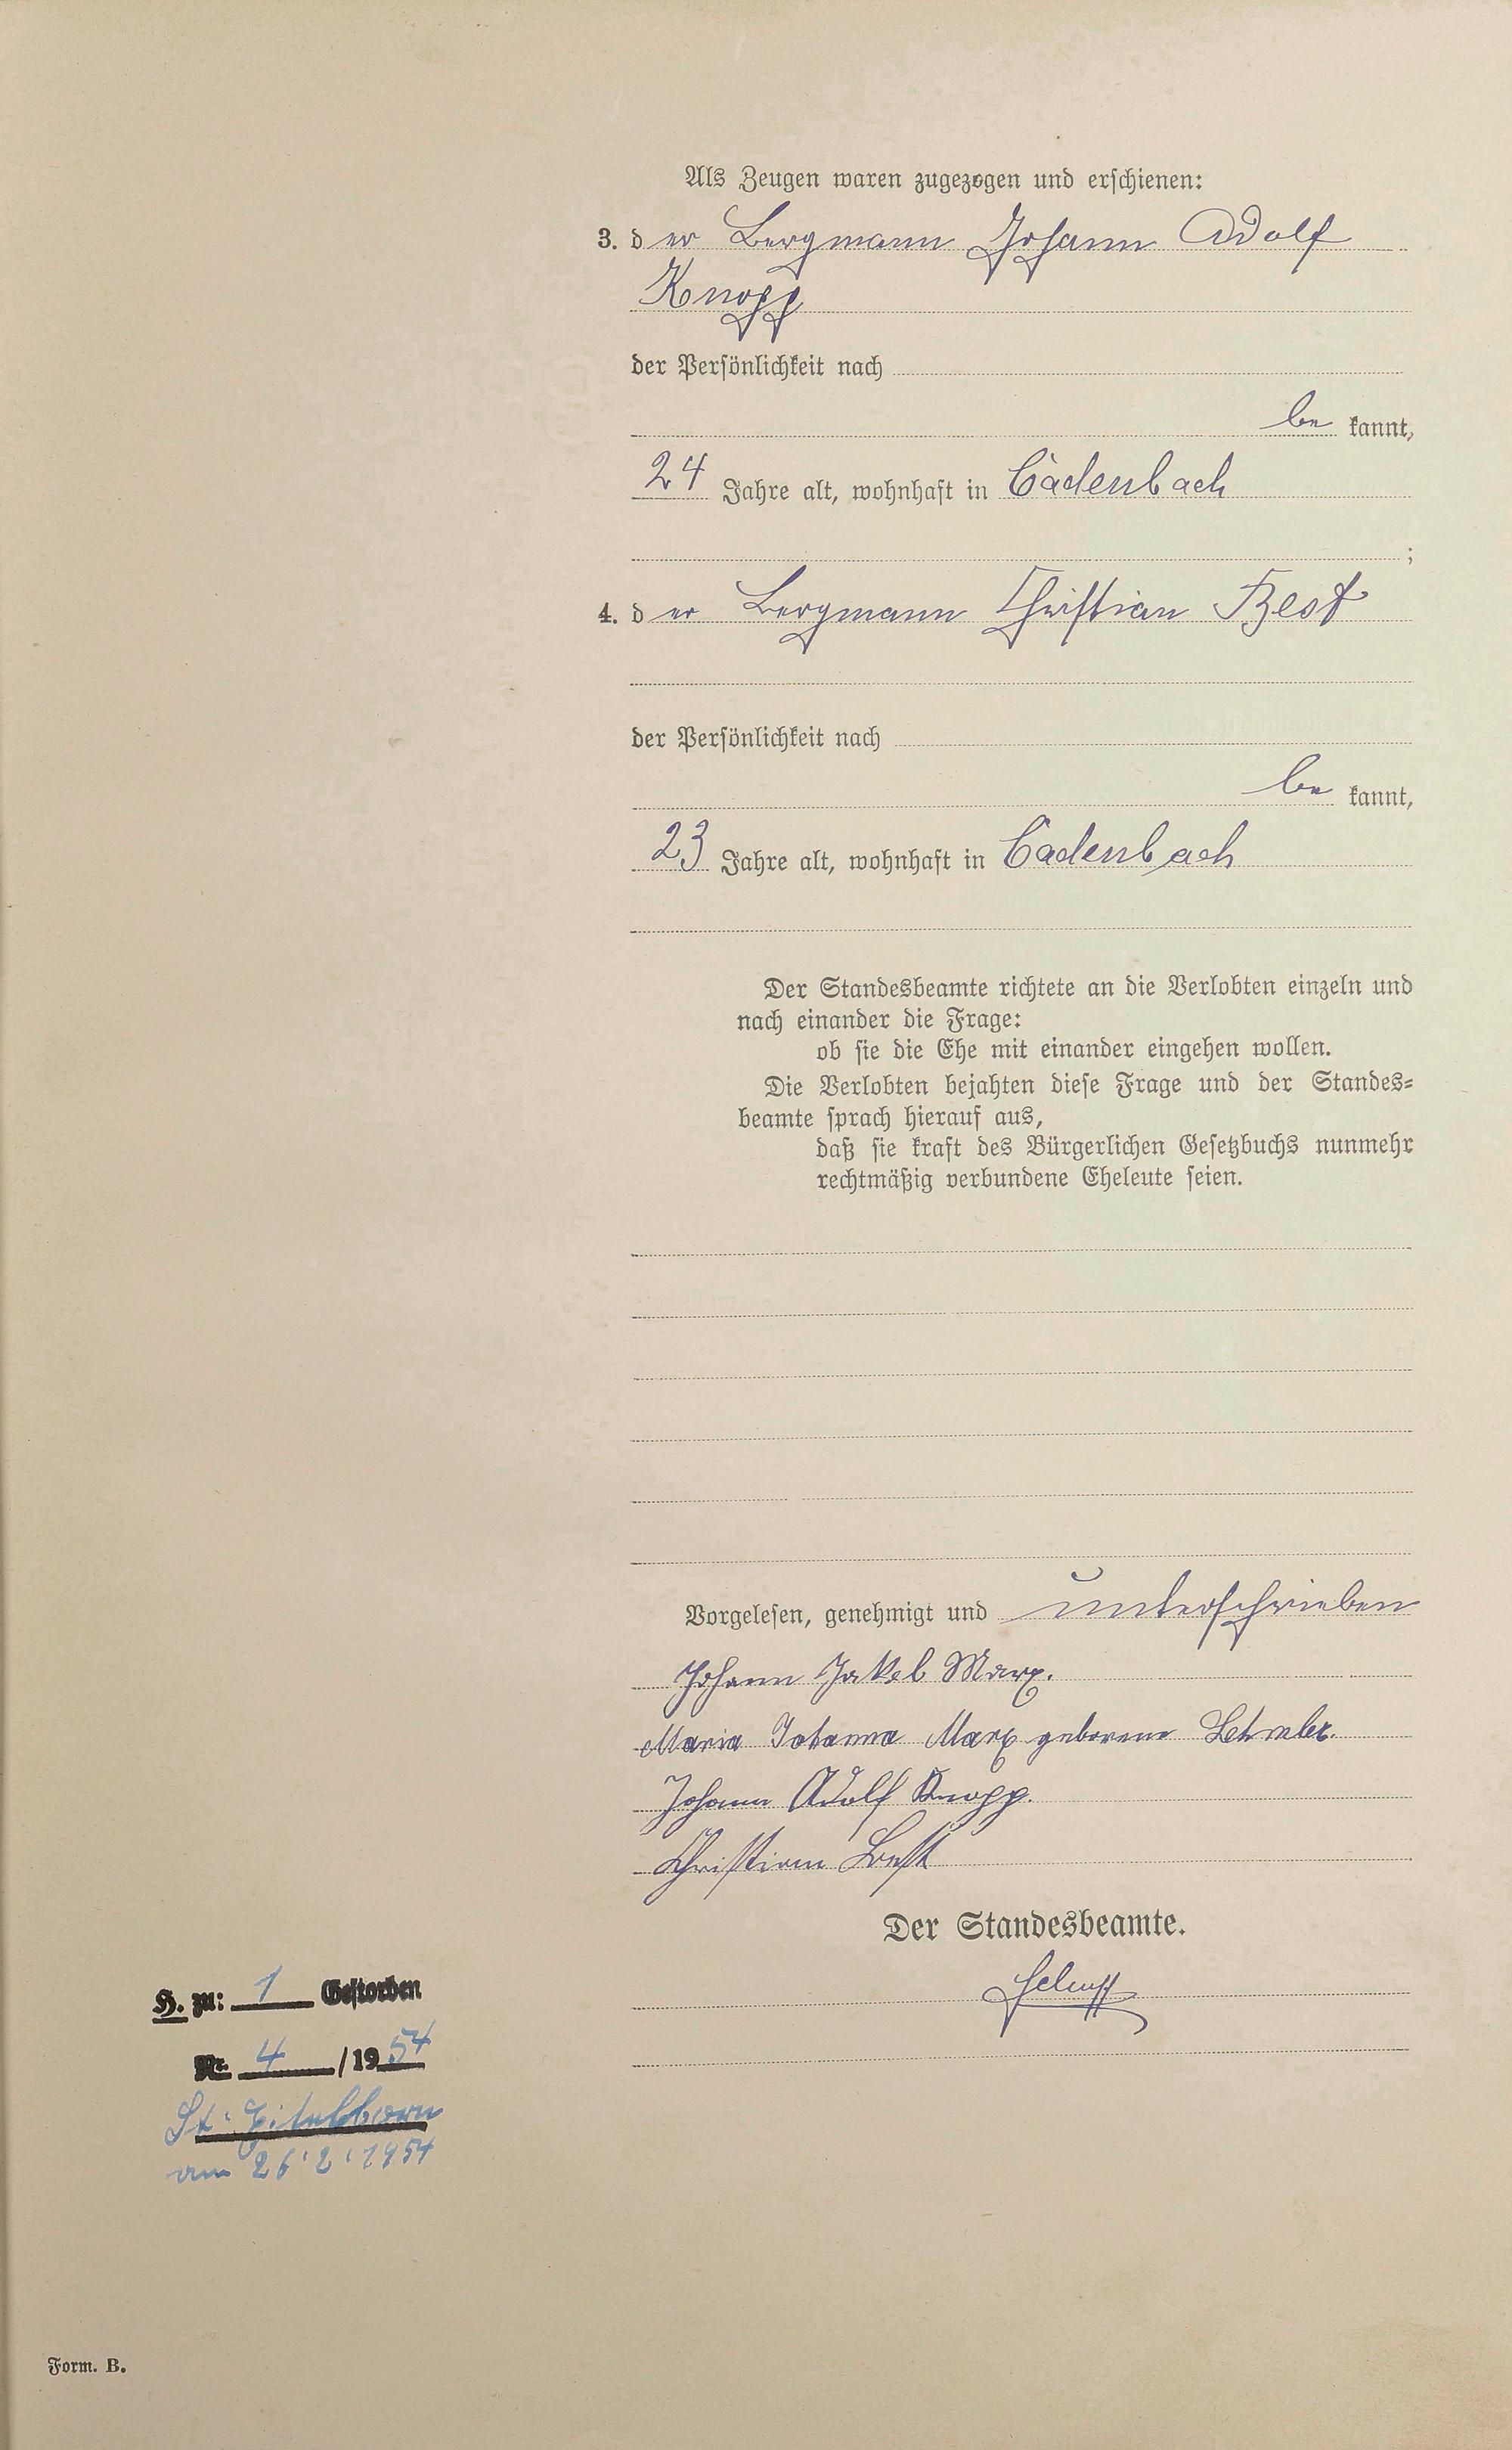 Als Zeugen waren zugezogen und erschienen:
3. der Bergmann Johann Adolf
Knopp
der Persönlichkeit nach
be kannt,
24 Jahre alt, wohnhaft in Cadenbach
;
4. der Bergmann Christian Best
der Persönlichkeit nach
be kannt,
23 Jahre alt, wohnhaft in Cadenbach
Der Standesbeamte richtete an die Verlobten einzeln und
nach einander die Frage:
ob sie die Ehe mit einander eingehen wollen.
Die Verlobten bejahten diese Frage und der Standes-
beamte sprach hierauf aus,
daß sie kraft des Bürgerlichen Gesetzbuchs nunmehr
rechtmäßig verbundene Eheleute seien.
Vorgelesen, genehmigt und unterschrieben
Johann Jakob Marx.
Maria Johanna Marx geborene
Johann Adolf Knopp.
Christian Best
Der Standesbeamte.
H. zu: 1 Gestorben
Nr. 4 /1954
St. Eitelborn
am 26.2.1954
Form. B.